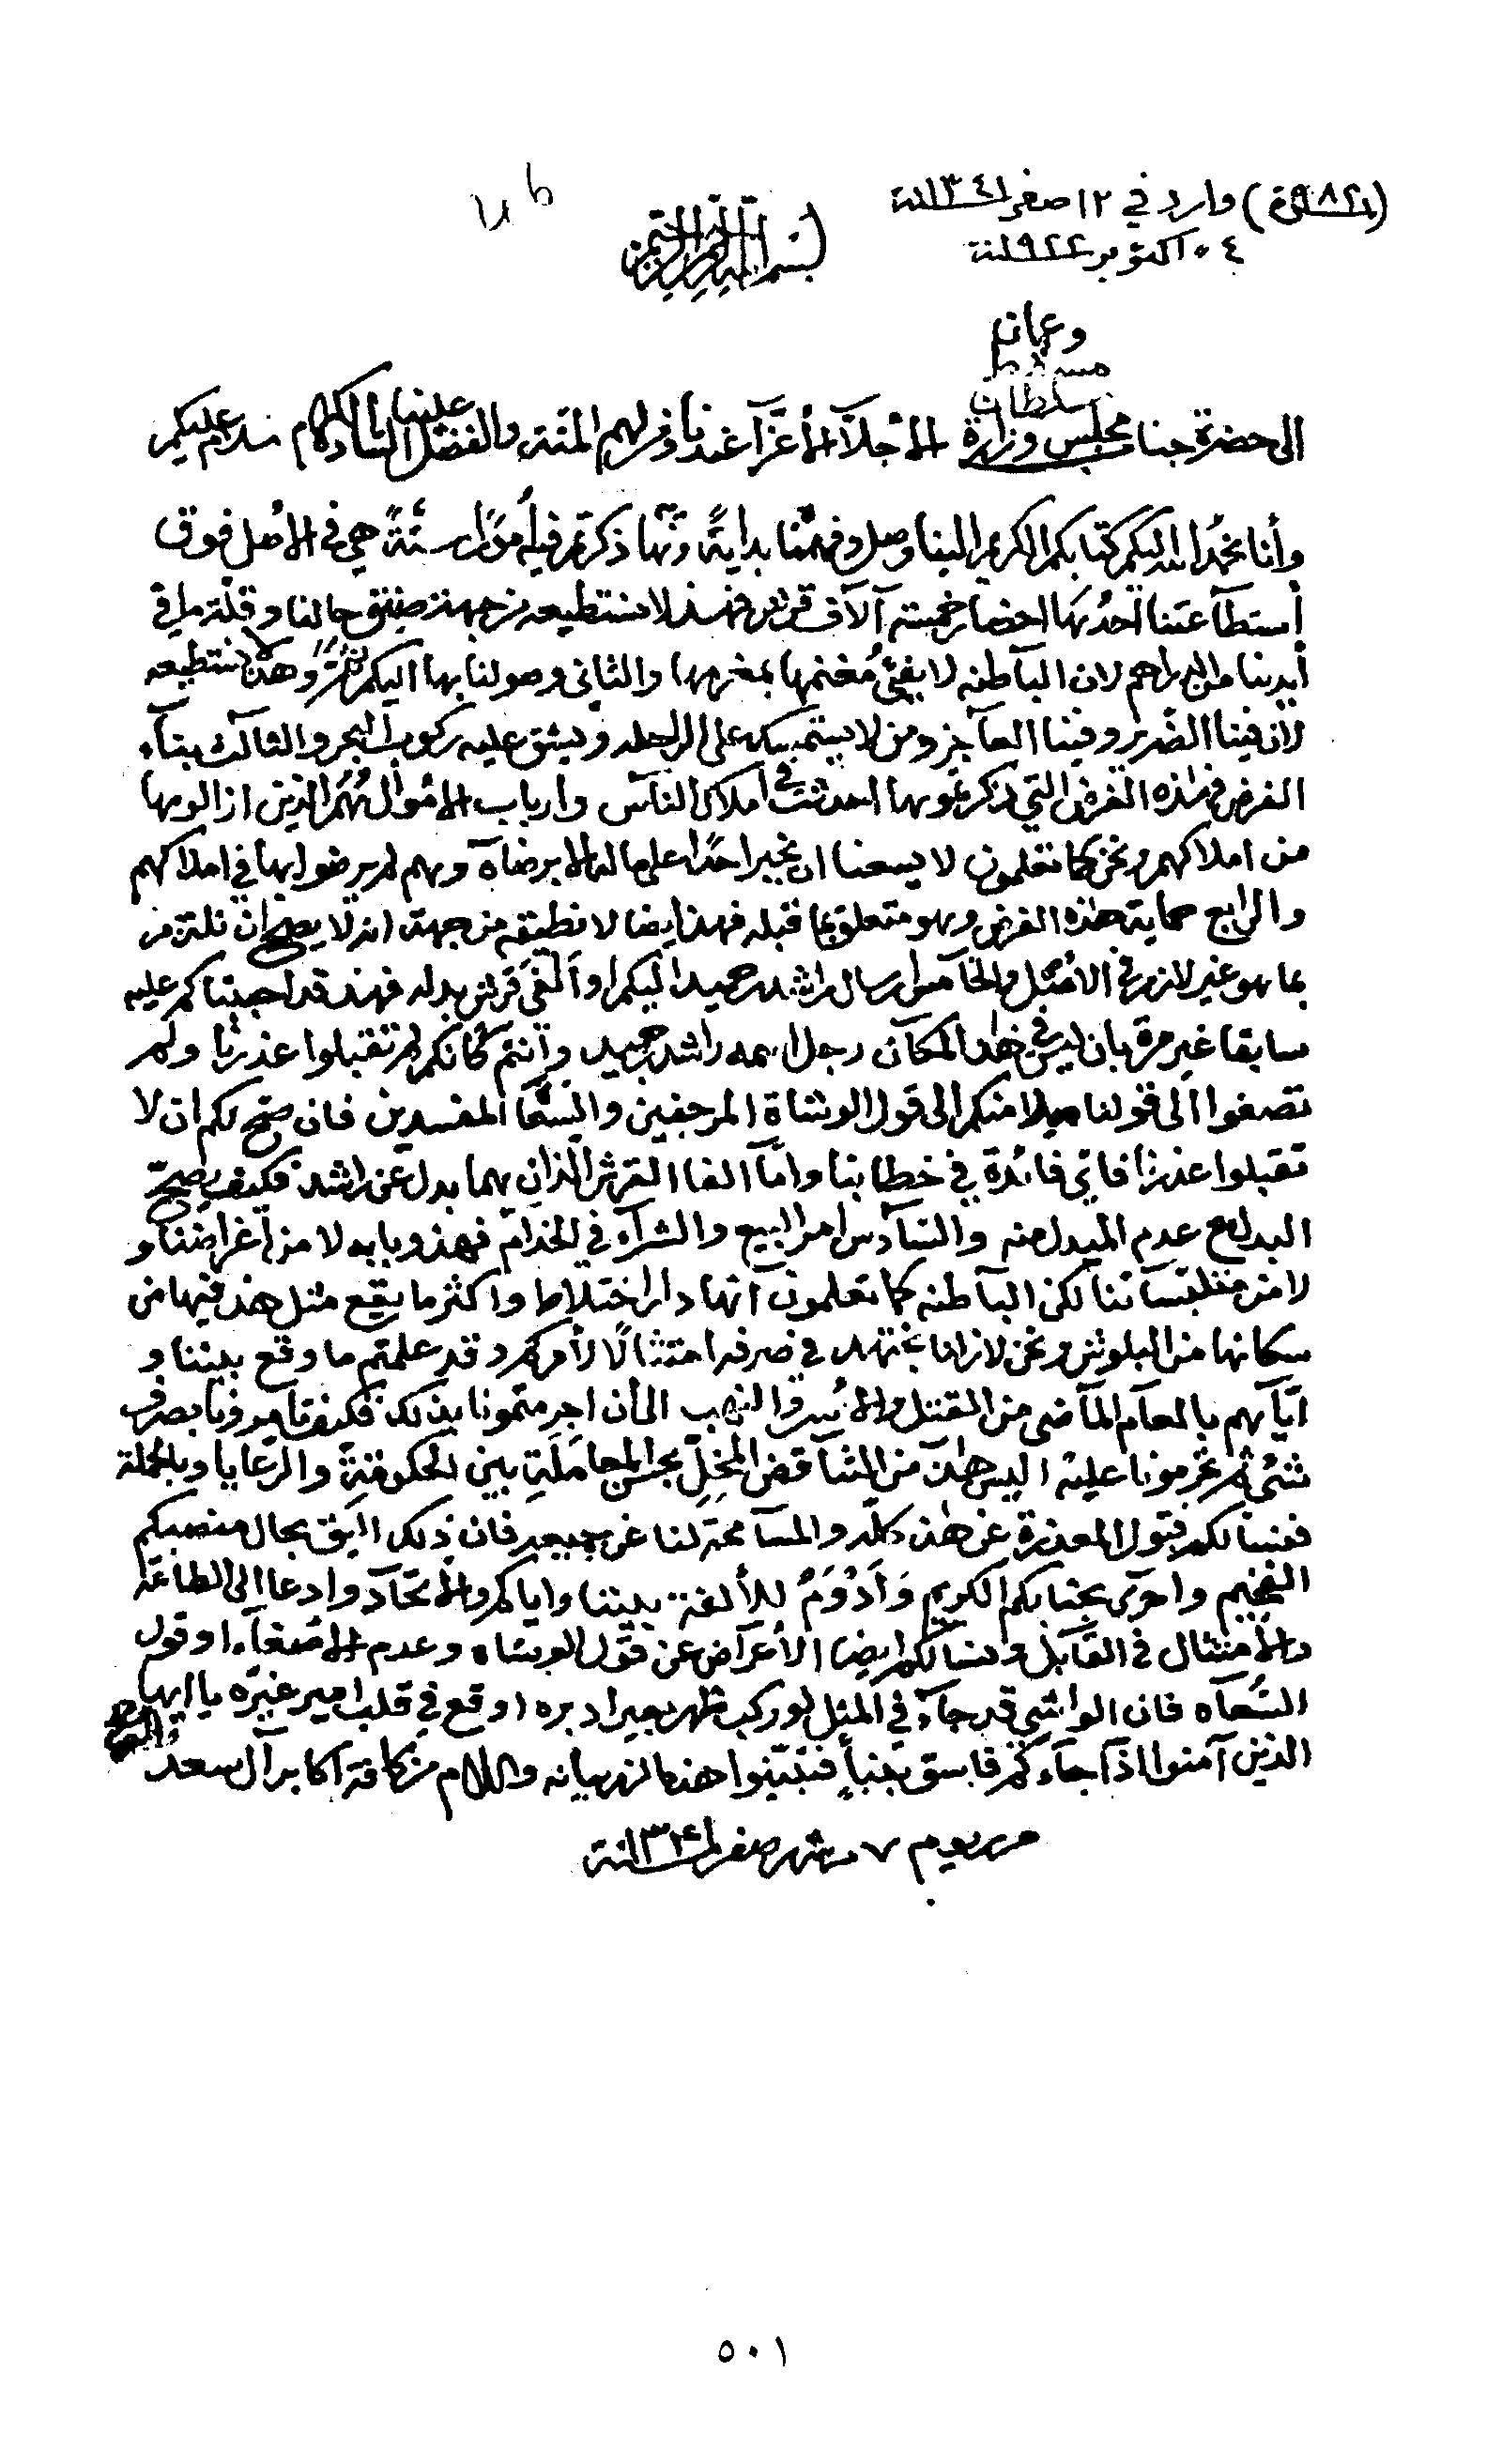 (٩٨٢) وارد في ١٢ صفر ١٣٤١ سنة
٤ اكتوبر ١٩٢٢ سنة
بسم الله الرحمن الرحيم
وعمان
مسقط
سلطان
الى حضرة جناب مجلس وزارة الأجلآء الأعزآء عندنا وفر لهم المنة والفضل علينا السادة الكرام سلام عليكم
وأنا نحمد الله اليكم كتابكم الكريم الينا وصل وفهمنا بداية وما ذكرتم فيه أمورا ستة هي في الأصل فوق
أستطآعتنا أحدها احضار خمسة آلآف قرش فهذا لا نستطيعه من جهة ضيق حالنا وقلة ما في
أيدينا من الدراهم لان البآطنه لا يفئ مغنمها بمغرمها والثاني وصولنا بها اليكم وهذا لا نستطيعه
لان فينا الضرير وفينا العآجز ومن لا يستمسك على الراحله ويشق عليه ركوب البحر والثالث بنآء
الفرض في هذه الفرض التي ذكرتموها احدثت في أملاك النآس وارباب الأموال هم الذين ازالوها
من املاكهم ونحن كما تعلمون لا يسعنا ان نجبر احدا على ماله الا برضآه وهم لم يرضوا بها في املاكهم
والرابع حماية هذه الفرض وهو متعلق بما قبله فهذا ايضا لا نطيقه من جهة انه لا يصح ان نلتزم
بما هو غير لازم في الأصل والخآمس ارسال راشد حميد اليكم او ألفي قرش بدله فهذا قد اجبناكم عليه
سابقا غير مرة بان ليس في هذا المكآن رجل اسمه راشد حميد وأنتم كأنكم لم تقبلوا عذرنا ولم
تصغوا الى قولنا ميلا منكم الى قول الوشاة المرجفين والسعآة المفسدين فان صح لكم ان لا
تقبلوا عذرنا فاي فائدة في خطابنا وامآ الفا القرش الذان هما بدل عن راشد فكيف يصح
البدل مع عدم المبدل منه والسآدس امر البيع والشرآء في الخدام فهذا وبابه لا من أغراضنا و
لا من منقلبساتنا لكن البآطنه كما تعلمون انها دار اختلاط واكثر ما يقع مثل هذا فيها من
سكانها من البلوش ونحن لا زلنا نجتهد في صرفه امتثالًا لأمركم وقد علمتم ما وقع بيننا و
ايآهم بالعآم المآضي من القتل والأسر والنهب الى أن اجرمتمونا بذلك فكيف تأمرونا بصرف
شئ ثم تجرمونا عليه اليس هذا من التنآقض المخل بحسن المعاملة بين الحكومة والرعايا وبالجملة
فنسألكم قبول المعذرة عن هذا كله والمسآمحة لنا عن جميعه فان ذلك اليق بحال منصبكم
الفخيم واحرى بجنابكم الكريم وأدوم للألفة بيننا واياكم والأتحآد وادعا الى الطاعة
والأمتثال في القآبل ونسألكم ايضا الأعراض عن قول الوشاه وعدم الأصغآء او قول
السعآه فان الواشي قد جآء في المثل لو ركب ظهر بعير ادبره اوقع في قلب امير غيره يا ايها
الذين آمنوا اذا جآءكم فاسق بنبأ فتبينوا هذا ما لزم بيانه والسلام من كافة اكابر آل سعد
حرر يوم ٧ من شهر صفر ١٣٤١ سنة
٥٠١